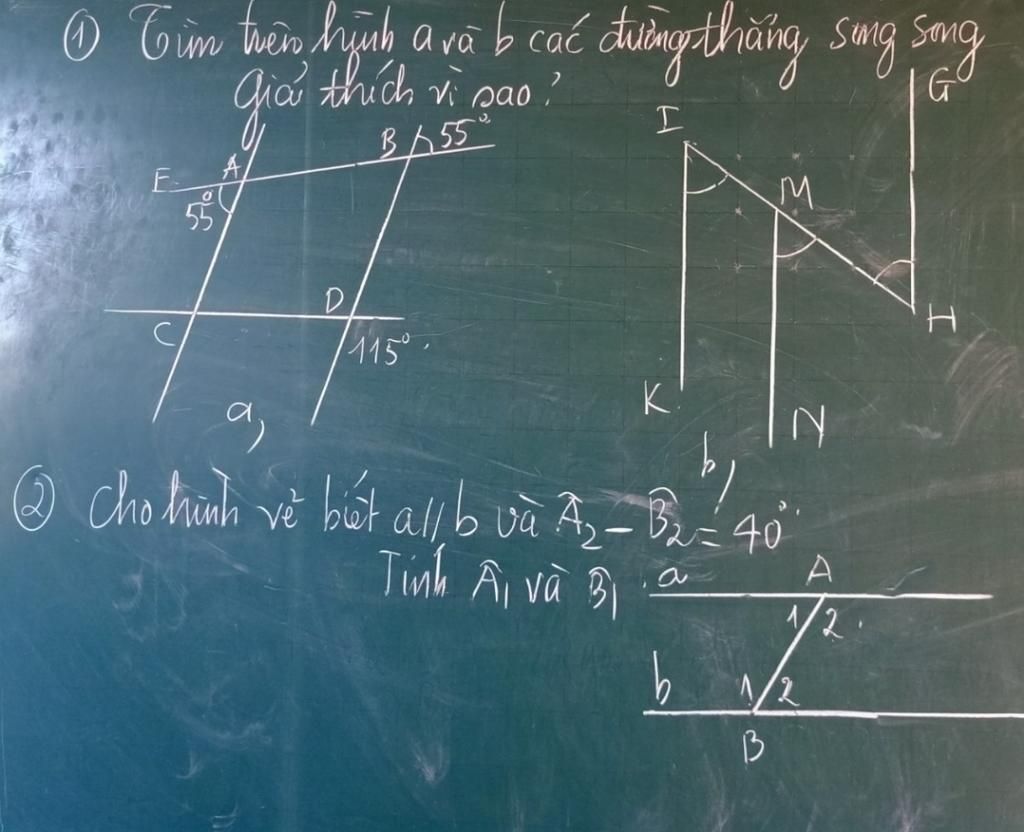 ① Tìm trên hình a và b các đường thẳng song song
Giải thích vì sao?
E
A
B
55°
55°
C
D
115°
a,
I
G
M
H
K
N
b,
② Cho hình vẽ biết a//b và Â₂ - B̂₂ = 40°
Tính Â₁ và B̂₁
a
A
1
2
b
1
2
B